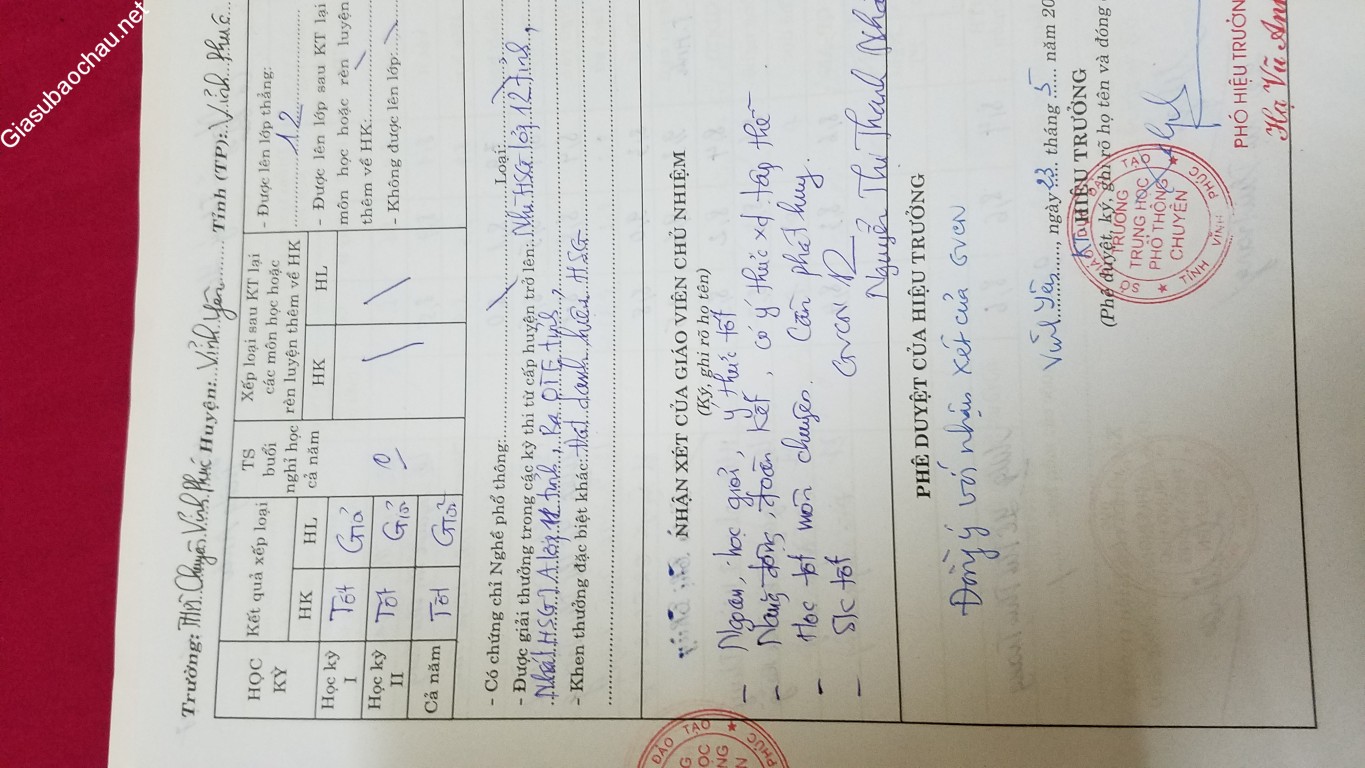 Giasubaochau.net
Trường: THPT Chuyên Vĩnh Phúc Huyện: Vĩnh Yên Tỉnh (TP): Vĩnh Phúc
HỌC KỲ
Kết quả xếp loại
HK
HL
TS buổi nghỉ học cả năm
Xếp loại sau KT lại các môn học hoặc rèn luyện thêm về HK
HK
HL
Học kỳ I
Tốt
Giỏi
Học kỳ II
Tốt
Giỏi
0
Cả năm
Tốt
Giỏi
- Được lên lớp thẳng:
12
- Được lên lớp sau KT lại
môn học hoặc rèn luyện
thêm về HK:
- Không được lên lớp:
- Có chứng chỉ Nghề phổ thông: Loại:
- Được giải thưởng trong các kỳ thi từ cấp huyện trở lên: Nhì HSG lớp 12 tỉnh,
Nhất HSG lớp 11 tỉnh, Ba tỉnh
- Khen thưởng đặc biệt khác: Đạt danh hiệu HSG
NHẬN XÉT CỦA GIÁO VIÊN CHỦ NHIỆM
(Ký, ghi rõ họ tên)
- Ngoan, học giỏi, ý thức tốt
- Năng động, đoàn kết, có ý thức xd tập thể
- Học tốt môn chuyên. Cần phát huy.
- Sk tốt
GVCN
Nguyễn Thị Thanh
PHÊ DUYỆT CỦA HIỆU TRƯỞNG
Đồng ý với nhận xét của GVCN
Vĩnh Yên, ngày 23 tháng 5 năm 20
KT HIỆU TRƯỞNG
(Phê duyệt, ký, ghi rõ họ tên và đóng
SỞ GIÁO DỤC VÀ ĐÀO TẠO
TRƯỜNG
TRUNG HỌC
PHỔ THÔNG
CHUYÊN
TỈNH VĨNH PHÚC
PHÓ HIỆU TRƯỞNG
Hạ Vũ Anh
ĐÀO TẠO
PHÚC